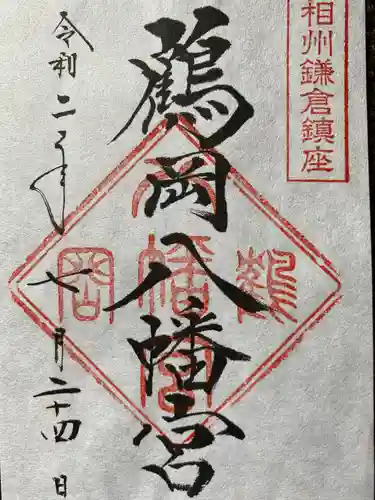 相州鎌倉鎮座
鶴岡八幡宮
令和二年
七月二十四日
鶴
八幡宮
岡